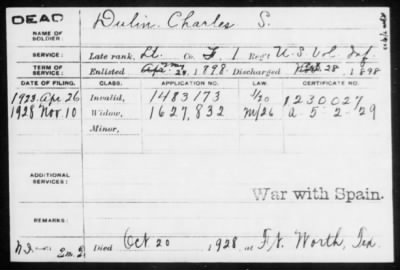 DEAD
NAME OF SOLDIER:
Dulin, Charles S.
SERVICE:
Late rank, Lt. Co. F, 1 Reg't U S Vol. Inf.
TERM OF SERVICE:
Enlisted 1898. Discharged 28, 1898
DATE OF FILING. CLASS. APPLICATION NO. LAW. CERTIFICATE NO.
1923 Apr 26 Invalid, 1483173 1230027
1928 Nov. 10 Widow, 1627,832 M/26 a-5-2-29
Minor,
ADDITIONAL SERVICES:
War with Spain.
REMARKS:
Died Oct 20 1928, at Ft. Worth, Tex.